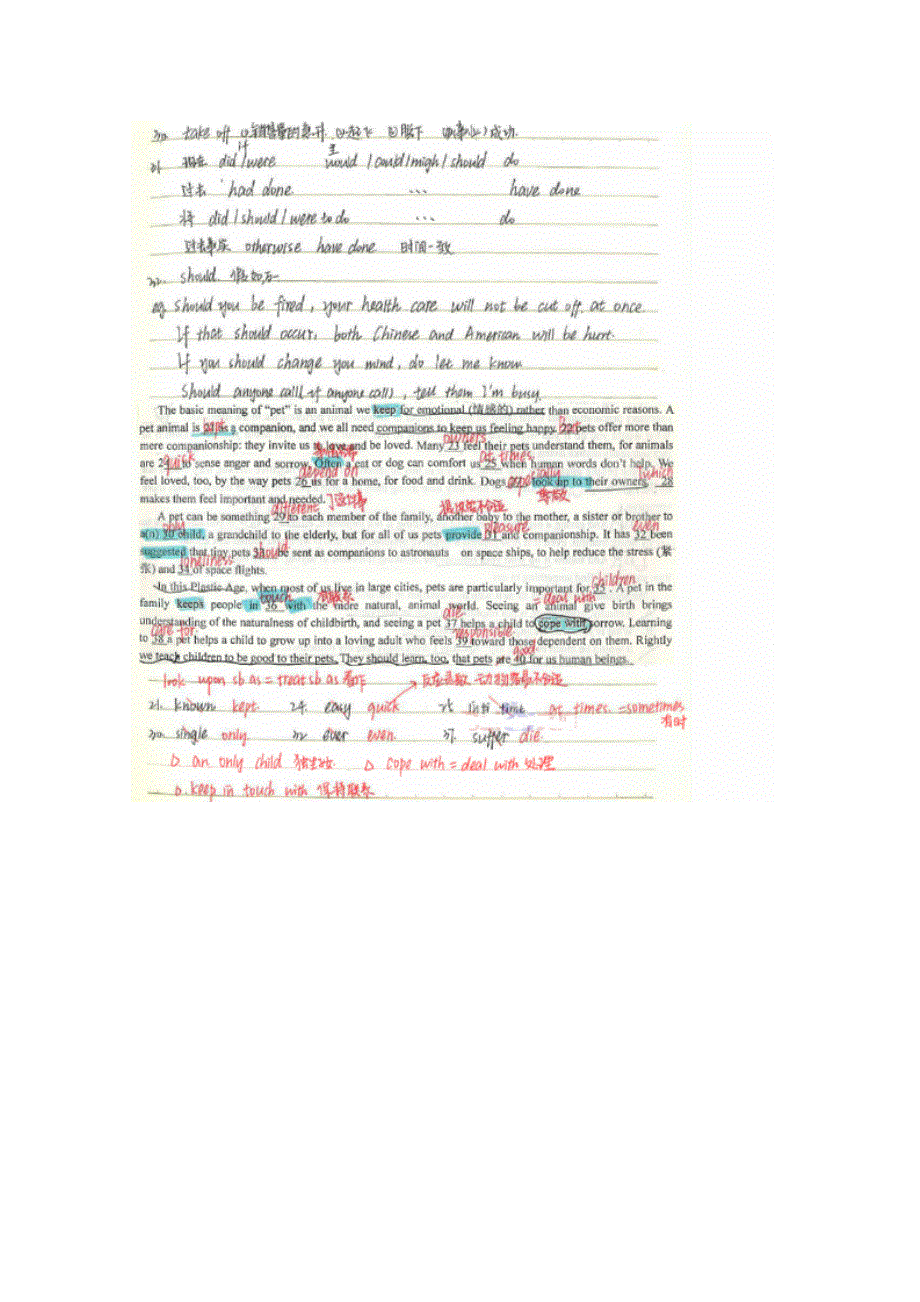 30. take off ①销售量的急升 ②起飞 ③脱下 ④(事业)成功.
if 主
31 现在 did/were would/could/migh/should do
过去 had done ... have done
将 did/should/were to do ... do
otherwise have done 时间一致
32. should. 假如万一
eg should you be fired, your health care will not be cut off at once.
If that should occur, both Chinese and American will be hurt.
If you should change you mind, do let me know
Should anyone call(if anyone call), tell them I'm busy.
The basic meaning of "pet" is an animal we keep for emotional (情感的) rather than economic reasons. A
pet animal is kept as a companion, and we all need companions to keep us feeling happy. 22 pets offer more than
owners
mere companionship: they invite us to love and be loved. Many 23 feel their pets understand them, for animals
quick at times
are 24 to sense anger and sorrow. Often a cat or dog can comfort us 25 when human words don't help. We
depend on especially which
feel loved, too, by the way pets 26 us for a home, for food and drink. Dogs 27 look up to their owners, 28
makes them feel important and needed.
different 尊敬
A pet can be something 29 to each member of the family, another baby to the mother, a sister or brother to
only pleasure even
a(n) 30 child, a grandchild to the elderly, but for all of us pets provide 31 and companionship. It has 32 been
suggested that tiny pets should be sent as companions to astronauts on space ships, to help reduce the stress (紧
loneliness
张) and 34 of space flights.
children
In this Plastic Age, when most of us live in large cities, pets are particularly important for 35 . A pet in the
touch = deal with
family keeps people in 36 with the more natural, animal world. Seeing an animal give birth brings
die
understanding of the naturalness of childbirth, and seeing a pet 37 helps a child to cope with sorrow. Learning
care for responsible
to 38 a pet helps a child to grow up into a loving adult who feels 39 toward those dependent on them. Rightly
good
we teach children to be good to their pets. They should learn, too, that pets are 40 for us human beings.
look upon sb as = treat sb as 看作
21. known kept. 24. easy quick 25 time at times. =sometimes
有时
30. single only. 32 ever even. 37. suffer die.
▷ an only child 独生女. ▷ cope with = deal with 处理
▷. keep in touch with 保持联系